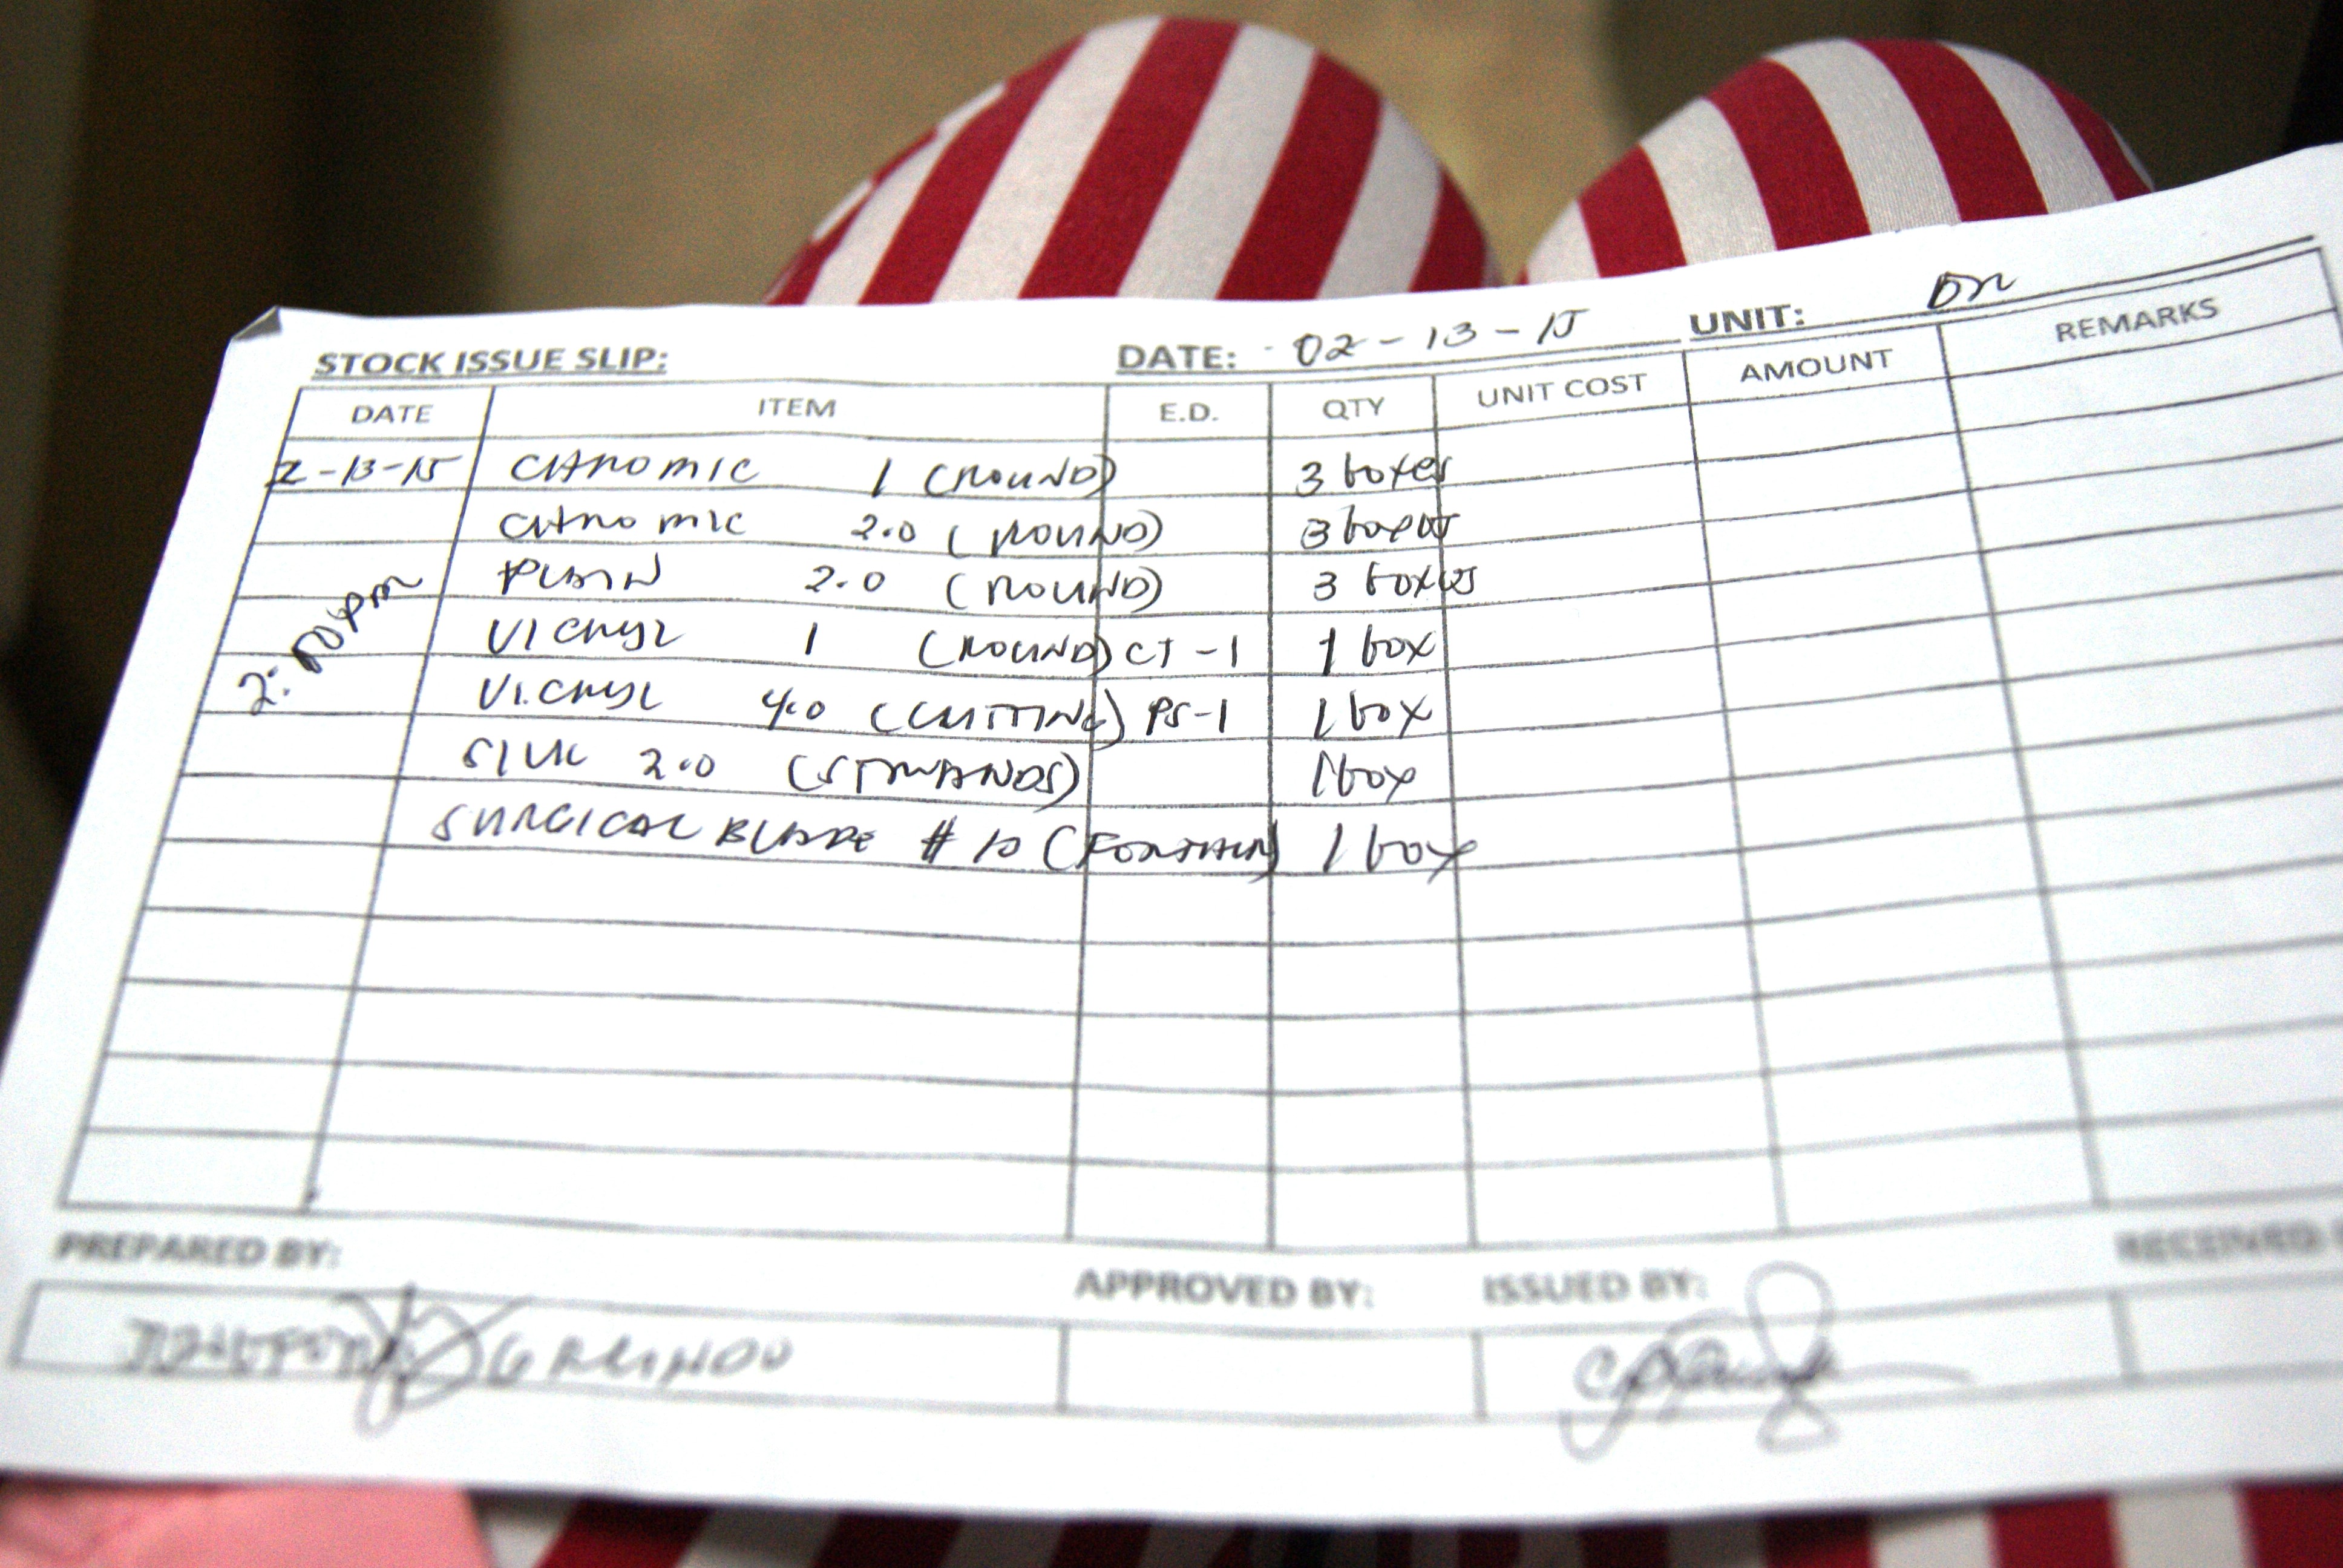 STOCK ISSUE SLIP: DATE: 02-13-15 UNIT: DR
DATE ITEM E.D. QTY UNIT COST AMOUNT REMARKS
2-13-15 CHROMIC 1 (ROUND) 3 boxes
CHROMIC 2.0 (ROUND) 3 boxes
PLAIN 2.0 (ROUND) 3 boxes
2:00pm
VICRYL 1 (ROUND) CT-1 1 box
VICRYL 4.0 (CUTTING) PS-1 1 box
SILK 2.0 (STRANDS) 1 box
SURGICAL BLADE # 10 ( 1 box
PREPARED BY: APPROVED BY: ISSUED BY: RECEIVED
GALINDO